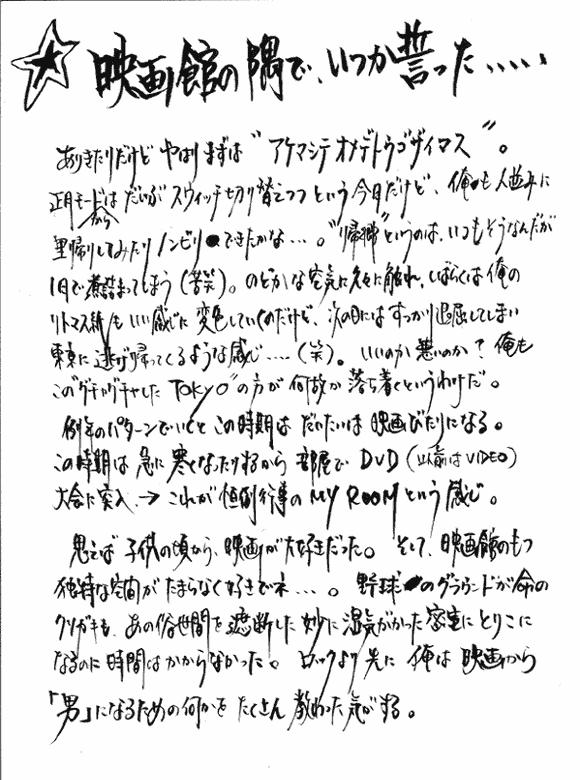 映画館の隅で、いつか誓った.....
ありきたりだけど やはり まずは “アケマシテ オメデトウゴザイマス”。
正月モードからは だいぶ スウィッチ切り替えつつ という 今日だけど、俺も 人並みに
里帰りしてみたり ノンビリできたかな....。“帰郷”というのは、いつもそうなんだが
1日で煮詰まってしまう(苦笑)。のどかな空気に久々に触れ、しばらくは俺の
リトマス紙も いい感じに 変色していくのだけど、次の日には すっかり退屈してしまい
東京に 逃げ帰ってくるような感じ....(笑)。いいのか 悪いのか? 俺も
この“グチャグチャした TOKYO”の方が 何故か 落ち着くというわけだ。
例年のパターンでいくと この時期は だいたいは 映画びたりになる。
この時期は 急に 寒くなったりするから 部屋で DVD(以前はVIDEO)
大会に突入。→ これが 恒例行事の MY ROOM という 感じ。
思えば 子供の頃から、映画が大好きだった。 そして、映画館のもつ
独特な空間が たまらなく好きでネ....。 野球のグラウンドが命の
クソガキも、あの俗世間を遮断した 妙に 湿気がかった 密室に とりこに
なるのに 時間はかからなかった。 ロックより 先に 俺は 映画から
「男」になるための何かを たくさん 教わった 気がする。